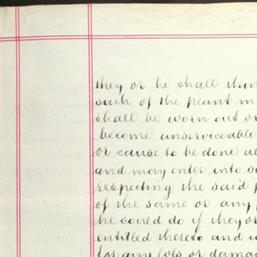 they or he shall thin
such of the plant m
shall be worn out or
become unserviceable
or cause to be done al
and may enter into
respecting the said
of the same or any
he could do if they or
entitled thereto and
for any loss or damag